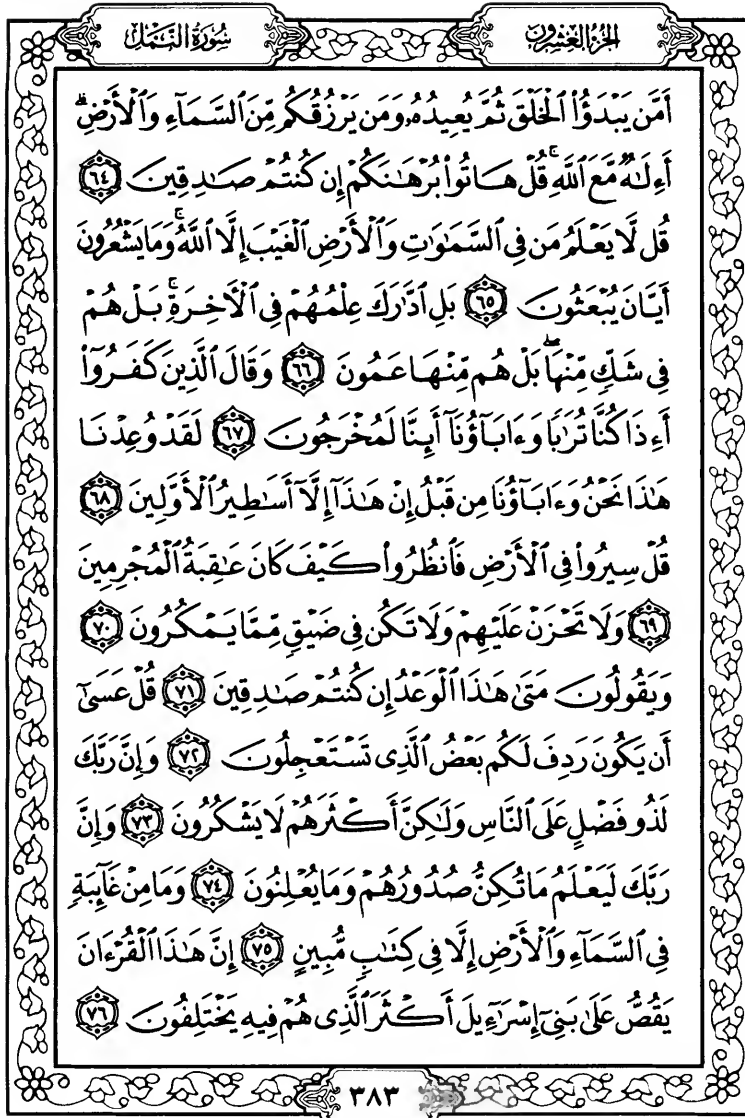 سُورَةُ النَّمْلِ
الجُزْءُ العِشْرُونَ
أَمَّن يَبْدَؤُا۟ ٱلْخَلْقَ ثُمَّ يُعِيدُهُۥ وَمَن يَرْزُقُكُم مِّنَ ٱلسَّمَآءِ وَٱلْأَرْضِ ۗ
أَءِلَـٰهٌ مَّعَ ٱللَّهِ ۚ قُلْ هَاتُوا۟ بُرْهَـٰنَكُمْ إِن كُنتُمْ صَـٰدِقِينَ ٦٤
قُل لَّا يَعْلَمُ مَن فِى ٱلسَّمَـٰوَٰتِ وَٱلْأَرْضِ ٱلْغَيْبَ إِلَّا ٱللَّهُ ۚ وَمَا يَشْعُرُونَ
أَيَّانَ يُبْعَثُونَ ٦٥ بَلِ ٱدَّٰرَكَ عِلْمُهُمْ فِى ٱلْـَٔاخِرَةِ ۚ بَلْ هُمْ
فِى شَكٍّ مِّنْهَا ۖ بَلْ هُم مِّنْهَا عَمُونَ ٦٦ وَقَالَ ٱلَّذِينَ كَفَرُوٓا۟
أَءِذَا كُنَّا تُرَٰبًا وَءَابَآؤُنَآ أَئِنَّا لَمُخْرَجُونَ ٦٧ لَقَدْ وُعِدْنَا
هَـٰذَا نَحْنُ وَءَابَآؤُنَا مِن قَبْلُ إِنْ هَـٰذَآ إِلَّآ أَسَـٰطِيرُ ٱلْأَوَّلِينَ ٦٨
قُلْ سِيرُوا۟ فِى ٱلْأَرْضِ فَٱنظُرُوا۟ كَيْفَ كَانَ عَـٰقِبَةُ ٱلْمُجْرِمِينَ
٦٩ وَلَا تَحْزَنْ عَلَيْهِمْ وَلَا تَكُن فِى ضَيْقٍ مِّمَّا يَمْكُرُونَ ٧٠
وَيَقُولُونَ مَتَىٰ هَـٰذَا ٱلْوَعْدُ إِن كُنتُمْ صَـٰدِقِينَ ٧١ قُلْ عَسَىٰٓ
أَن يَكُونَ رَدِفَ لَكُم بَعْضُ ٱلَّذِى تَسْتَعْجِلُونَ ٧٢ وَإِنَّ رَبَّكَ
لَذُو فَضْلٍ عَلَى ٱلنَّاسِ وَلَـٰكِنَّ أَكْثَرَهُمْ لَا يَشْكُرُونَ ٧٣ وَإِنَّ
رَبَّكَ لَيَعْلَمُ مَا تُكِنُّ صُدُورُهُمْ وَمَا يُعْلِنُونَ ٧٤ وَمَا مِنْ غَآئِبَةٍ
فِى ٱلسَّمَآءِ وَٱلْأَرْضِ إِلَّا فِى كِتَـٰبٍ مُّبِينٍ ٧٥ إِنَّ هَـٰذَا ٱلْقُرْءَانَ
يَقُصُّ عَلَىٰ بَنِىٓ إِسْرَٰٓءِيلَ أَكْثَرَ ٱلَّذِى هُمْ فِيهِ يَخْتَلِفُونَ ٧٦
٣٨٣